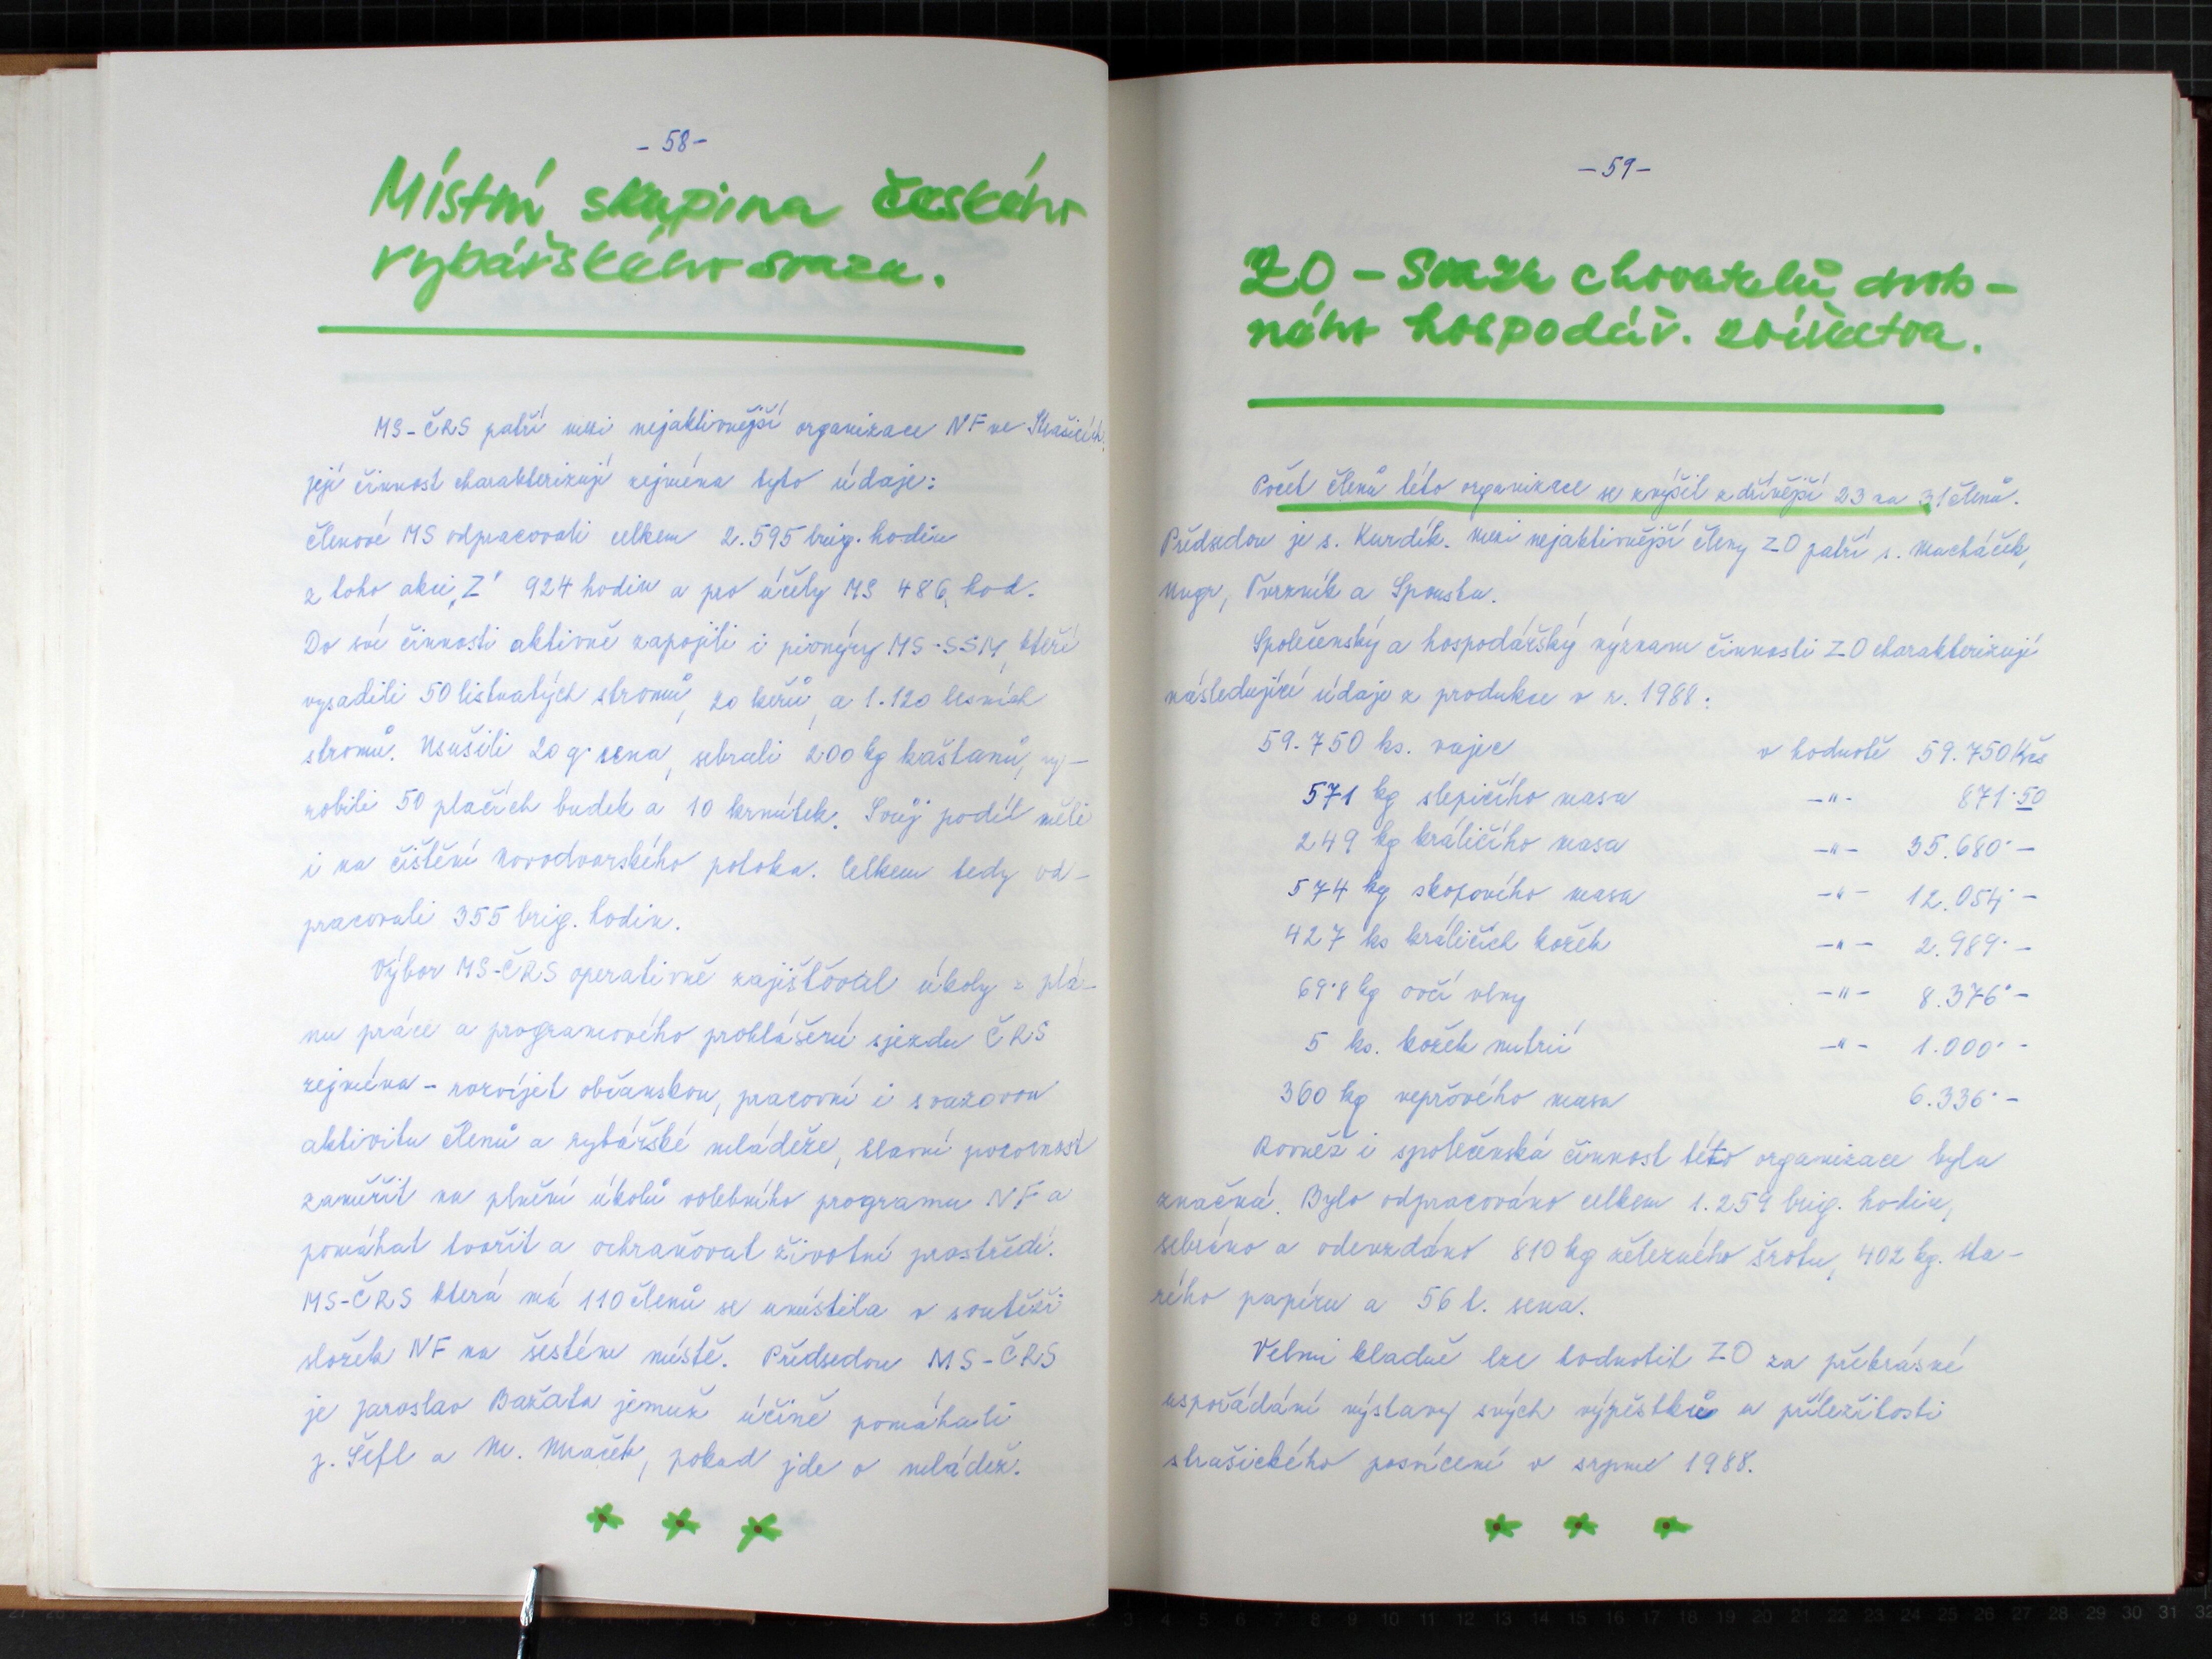 - 58 -
Místní skupina českého
rybářského svazu.
MS-ČRS patří mezi nejaktivnější organizace NF ve Strašicích,
její činnost charakterizují zejména tyto údaje:
členové MS odpracovali celkem 2.595 brig. hodin
z toho akci „Z" 924 hodin a pro účely MS 486 hod.
Do své činnosti aktivně zapojili i pionýry MS-SSM, kteří
vysadili 50 listnatých stromů, 20 keřů, a 1.120 lesních
stromů. Usušili 20 q sena, sebrali 200 kg kaštanů, vy-
robili 50 ptačích budek a 10 krmítek. Svůj podíl měli
i na čištění Novodvorského potoka. Celkem tedy od-
pracovali 355 brig. hodin.
Výbor MS-ČRS operativně zajišťoval úkoly z plá-
nu práce a programového prohlášení sjezdu ČRS
zejména - rozvíjet občanskou, pracovní i svazovou
aktivitu členů a rybářské mládeže, hlavní pozornost
zaměřit na plnění úkolů volebního programu NF a
pomáhat tvořit a ochraňovat životní prostředí.
MS-ČRS která má 110 členů se umístila v soutěži
složek NF na šestém místě. Předsedou MS-ČRS
je Jaroslav Bažata jemuž účině pomáhali
J. Šefl a M. Mraček, pokud jde o mládež.
- 59 -
ZO - Svazu chovatelů drob-
ného hospodář. zvířectva.
Počet členů této organizace se zvýšil z dřívější 23 na 31 členů.
Předsedou je s. Kurdík. Mezi nejaktivnější členy ZO patří s. Macháček,
Ungr, Tvrzník a Spousta.
Společenský a hospodářský význam činnosti ZO charakterizují
následující údaje z produkce v r. 1988:
59.750 ks. vajec v hodnotě 59.750 Kčs
571 kg slepičího masa -"- 871.50
249 kg králičího masa -"- 35.680.-
574 kg skopového masa -"- 12.054.-
427 ks králičích kožek -"- 2.989.-
69.8 kg ovčí vlny -"- 8.376.-
5 ks. kožek nutrií -"- 1.000.-
360 kg vepřového masa 6.336.-
Rovněž i společenská činnost této organizace byla
značná. Bylo odpracováno celkem 1.259 brig. hodin,
sebráno a odevzdáno 810 kg železného šrotu, 402 kg. sta-
rého papíru a 56 t. sena.
Velmi kladně lze hodnotit ZO za překrásné
uspořádání výstavy svých výpěstků u příležitosti
strašického posvícení v srpnu 1988.